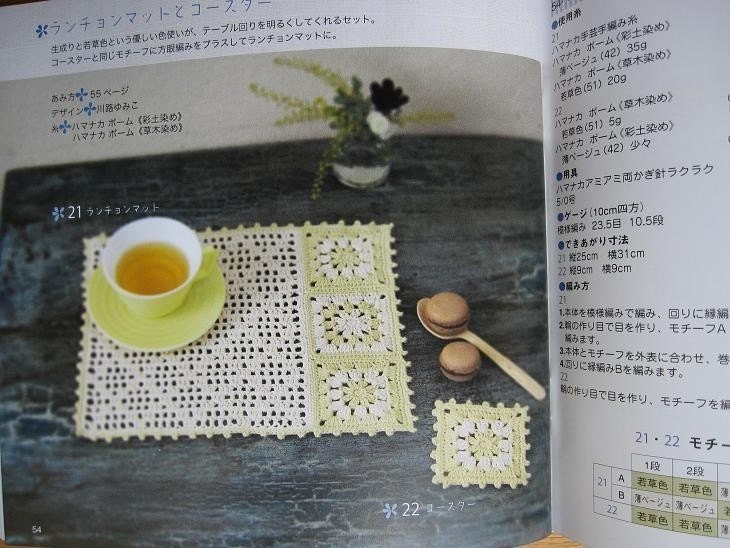 ランチョンマットとコースター
生成りと若草色という優しい色使いが、テーブル回りを明るくしてくれるセット。
コースターと同じモチーフに方眼編みをプラスしてランチョンマットに。
あみ方 55ページ
デザイン 川路ゆみこ
糸 ハマナカ ポーム《彩土染め》
ハマナカ ポーム《草木染め》
21 ランチョンマット
22 コースター
54
●使用糸
21
ハマナカ手芸手編み糸
ハマナカ ポーム《彩土染め》
薄ベージュ(42) 35g
ハマナカ ポーム《草木染め》
若草色(51) 20g
22
ハマナカ ポーム《草木染め》
若草色(51) 5g
ハマナカ ポーム《彩土染め》
薄ベージュ(42) 少々
●用具
ハマナカアミアミ両かぎ針ラクラク
5/0号
●ゲージ(10cm四方)
模様編み 23.5目 10.5段
●できあがり寸法
21 縦25cm 横31cm
22 縦9cm 横9cm
●編み方
21
1.本体を模様編みで編み、回りに縁編
2.輪の作り目で目を作り、モチーフA
編みます。
3.本体とモチーフを外表に合わせ、巻
4.回りに縁編みBを編みます。
22
輪の作り目で目を作り、モチーフを編
21・22 モチー
1段 2段
21 A 若草色 若草色 薄
B 薄ベージュ 薄ベージュ
22 若草色 若草色 薄